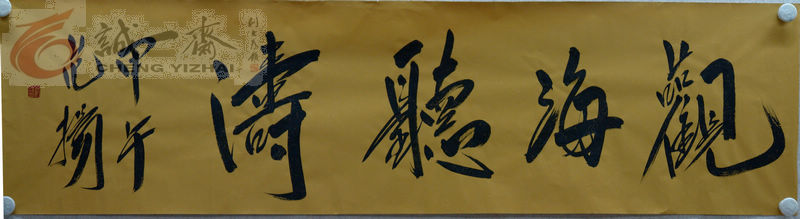 觀海聽濤
甲午
誠一齋
CHENG YIZHAI